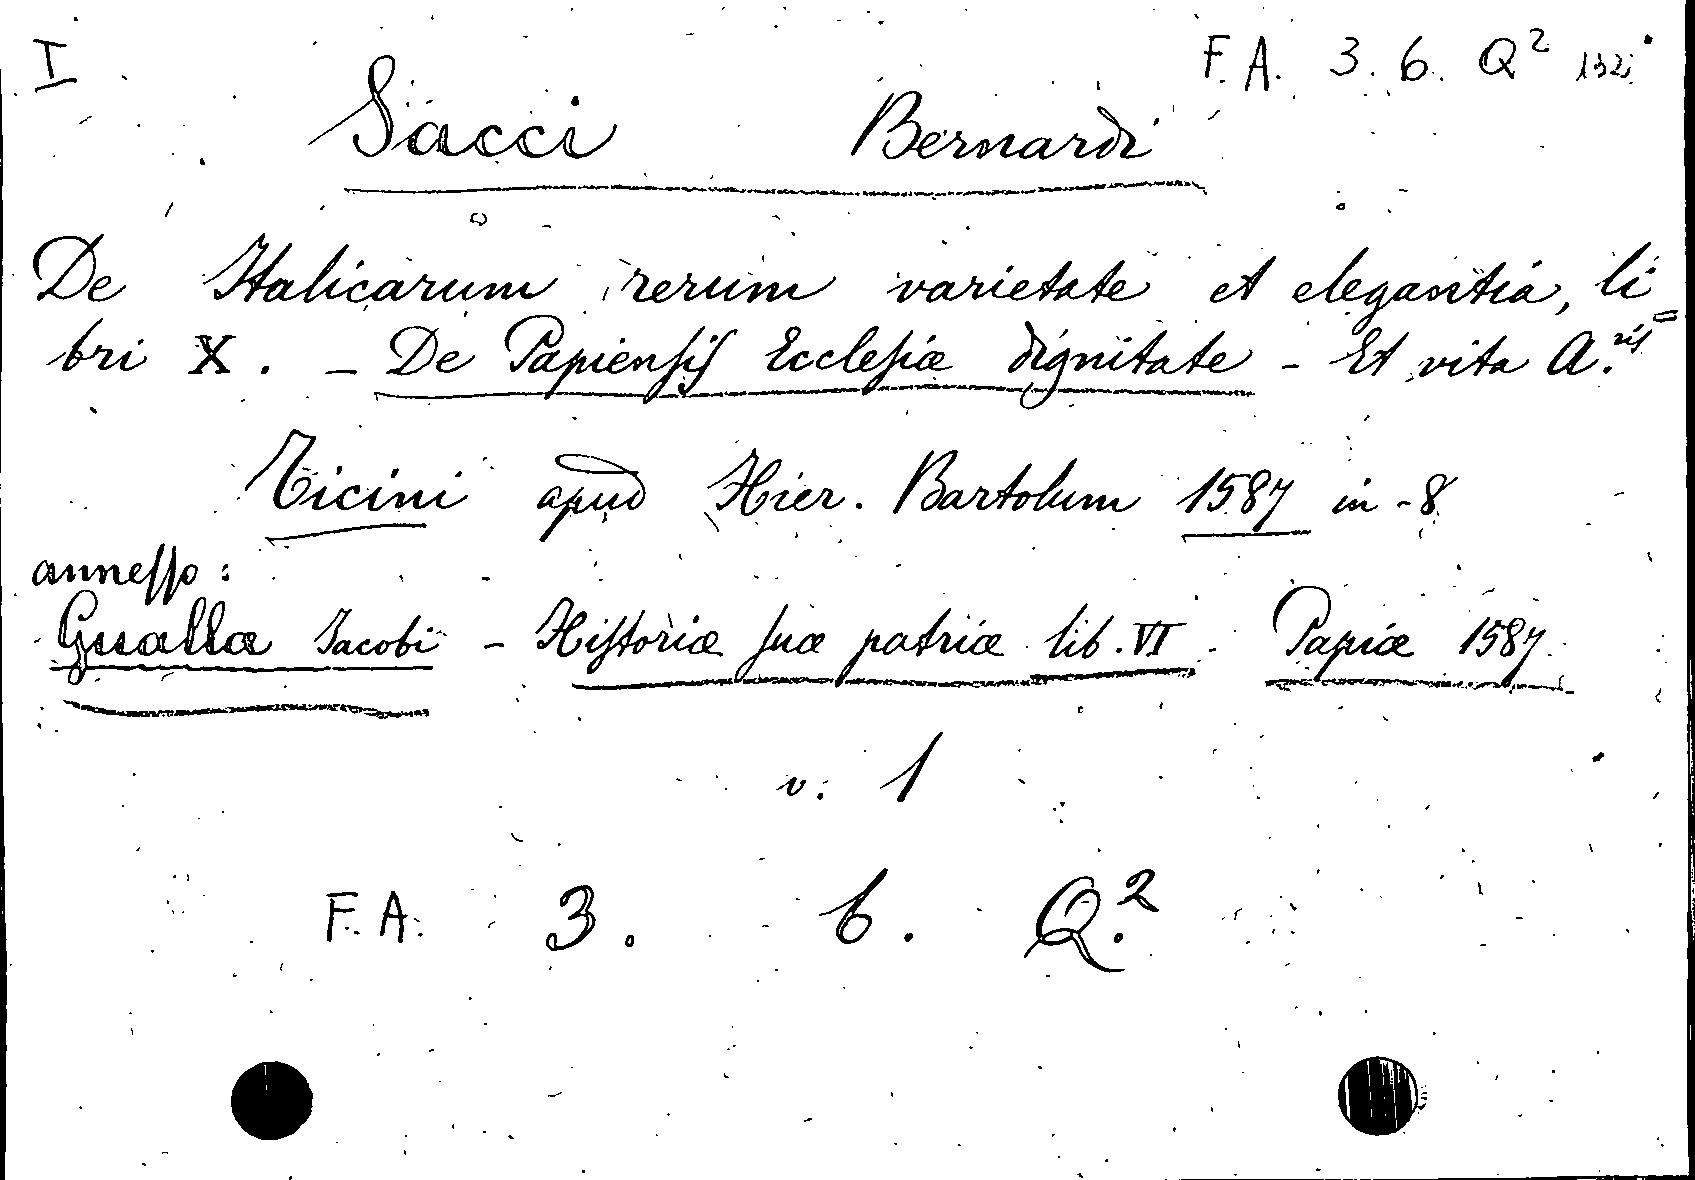 I
F. A. 3. 6. Q²
Sacci Bernardi
De Italicarum rerum varietate et elegantia, li=
bri X. - De Papiensis Ecclesiæ dignitate - Et vita A.ris
Ticini apud Hier. Bartolum 1587 in-8
annesso:
Guallæ Jacobi - Historiæ suæ patriæ lib. VI. Papiæ 1587.
v. 1
F. A. 3. 6. Q.²